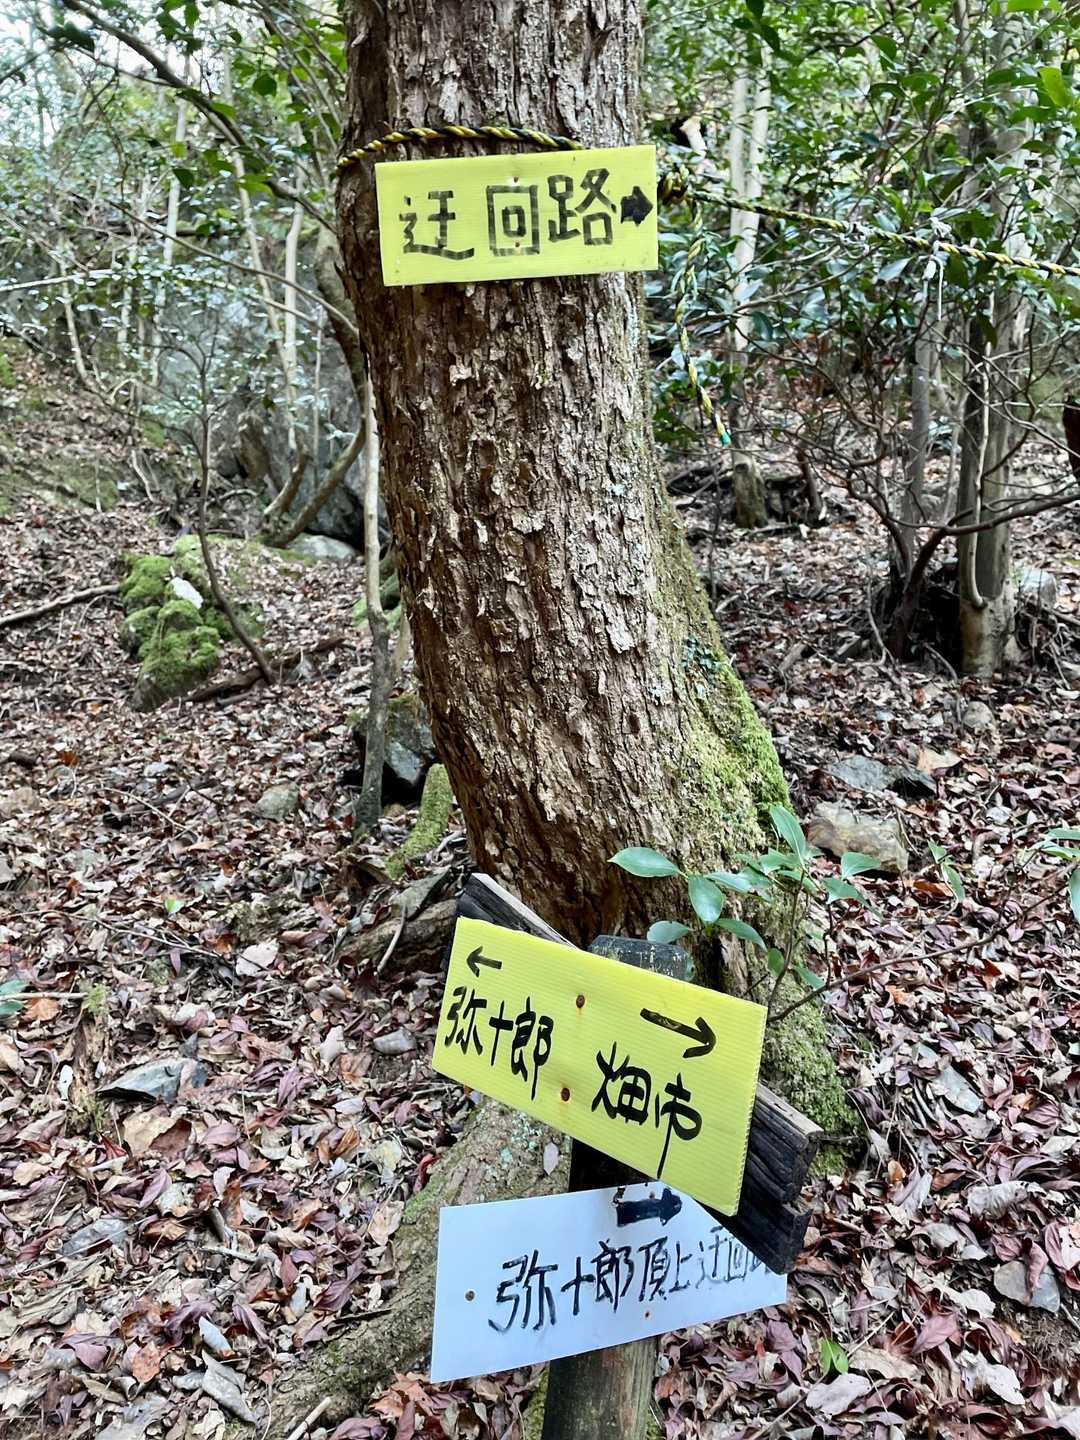 迂回路➡
← →
弥十郎 畑市
➡
弥十郎頂上迂回